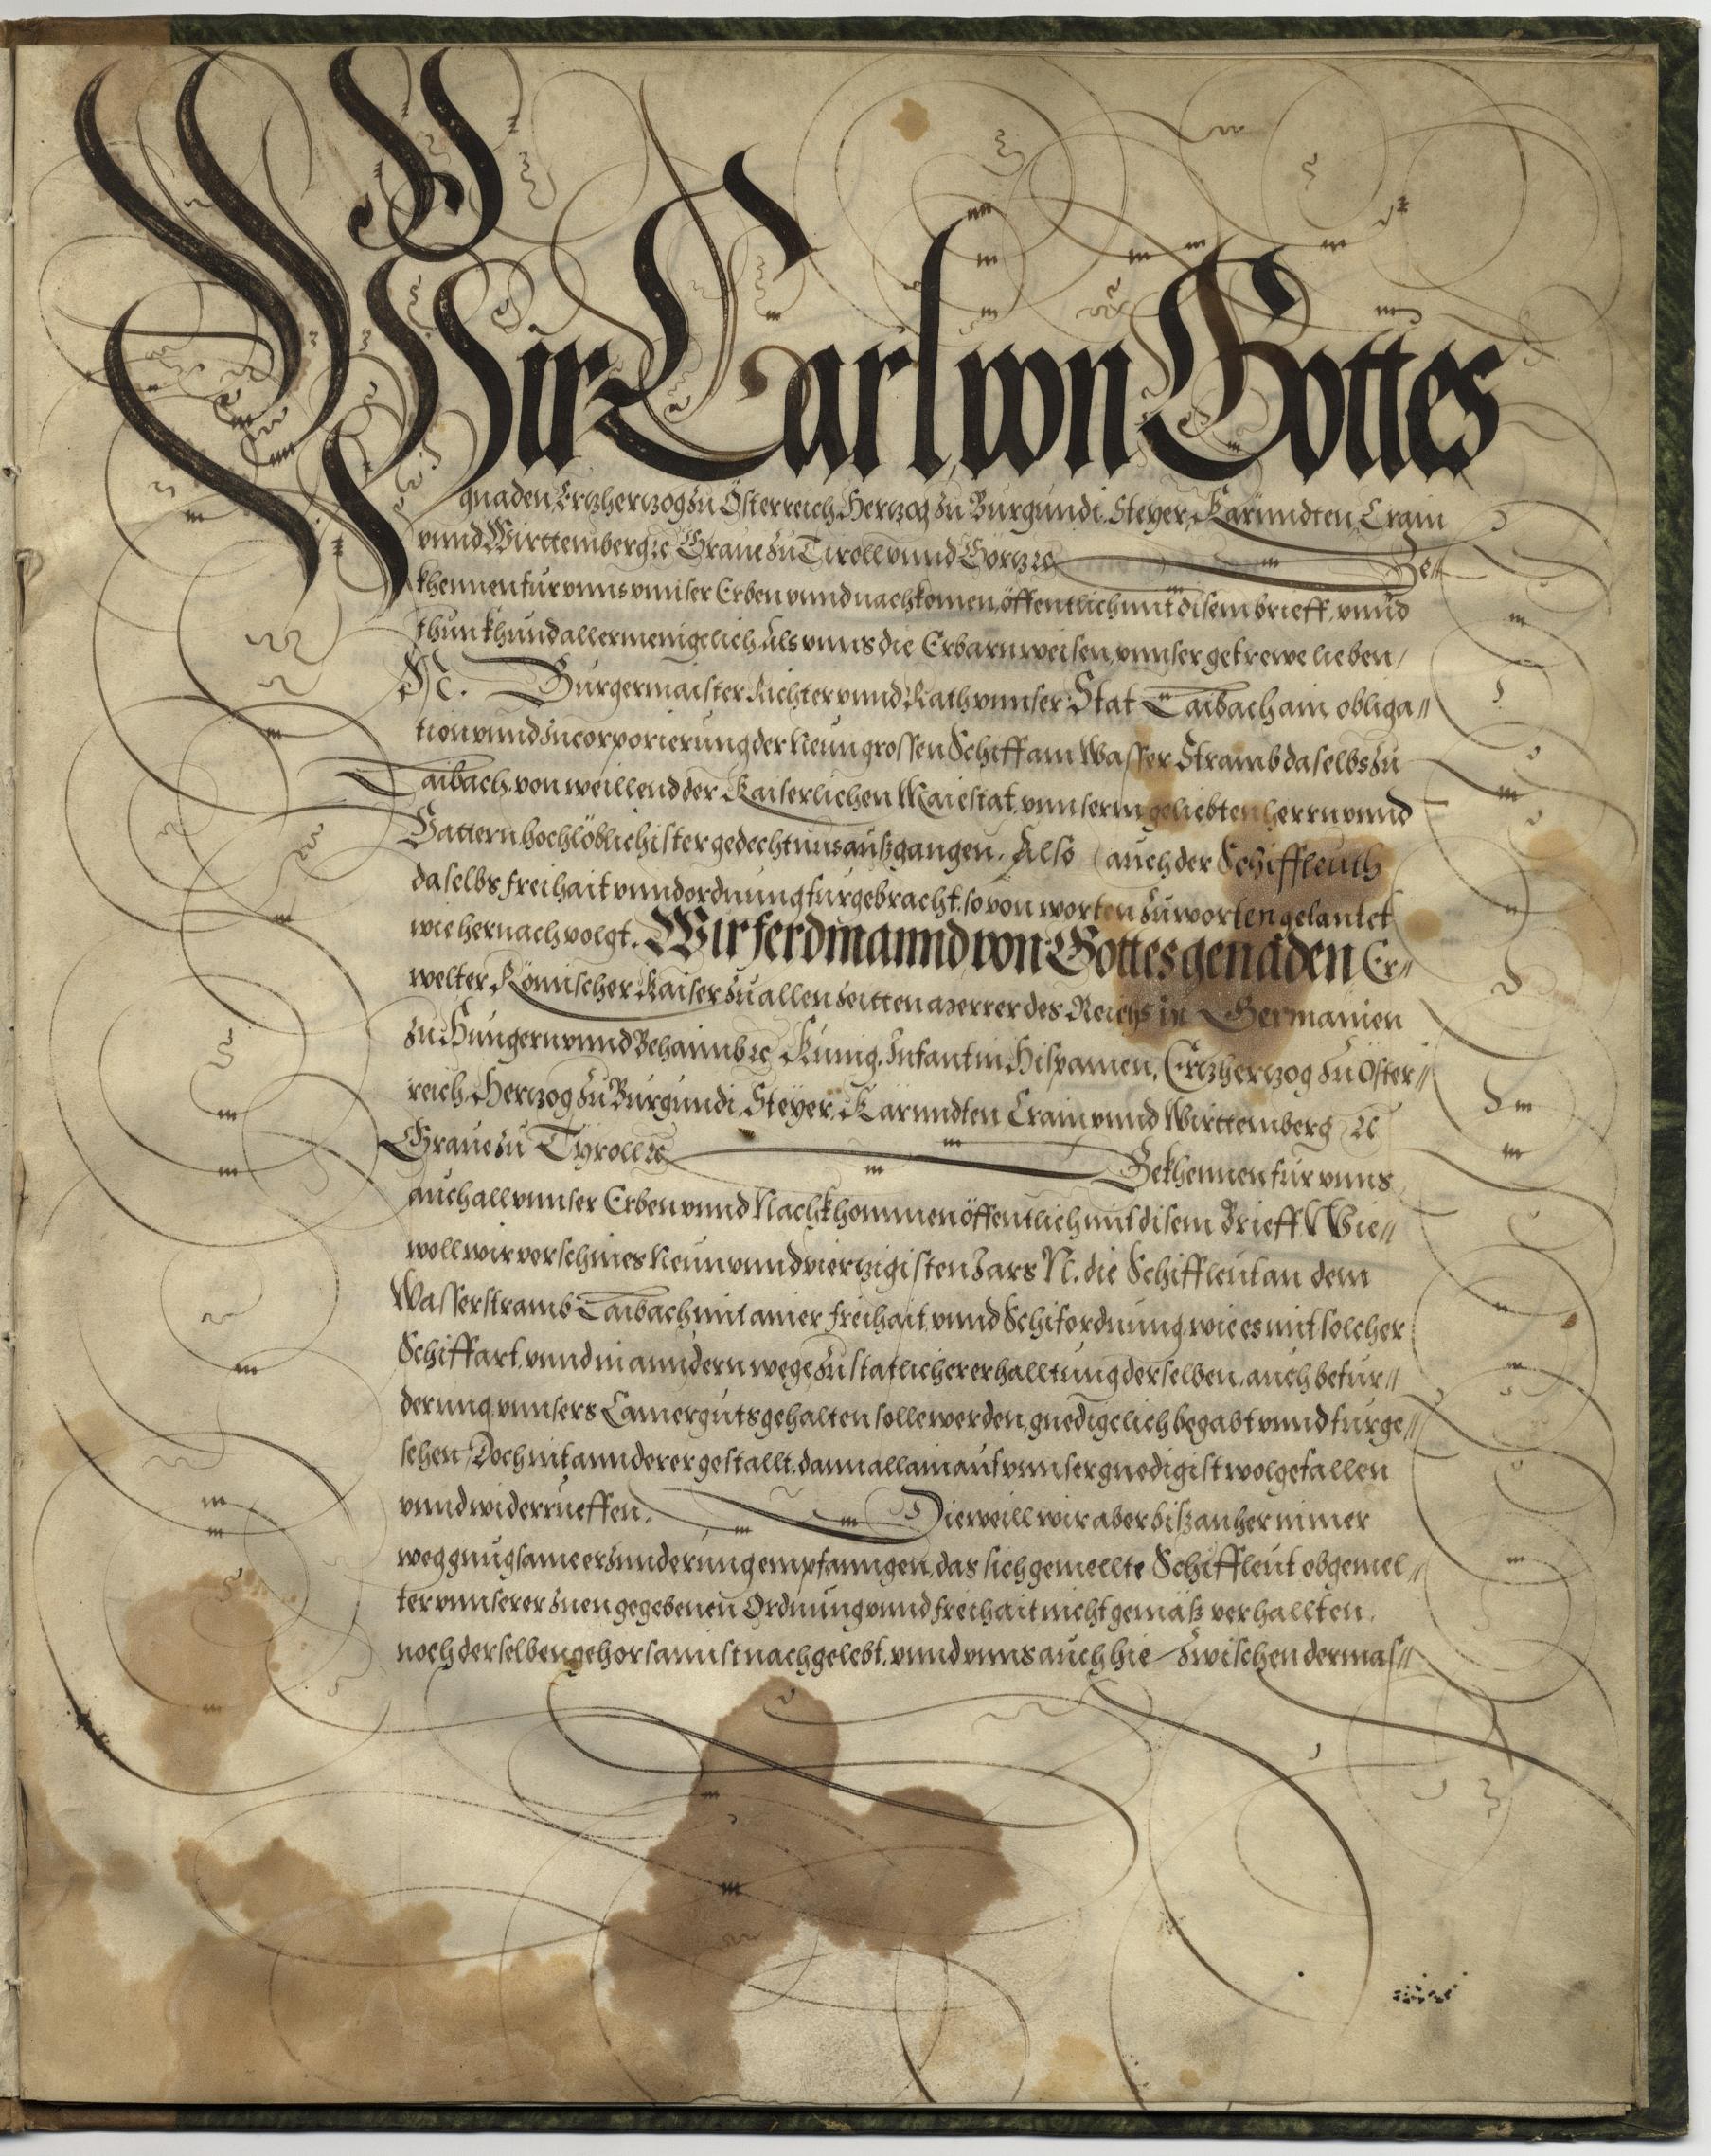 Wir Carl von Gottes
gnaden, Ertzhertzog zu Österreich, Hertzog zu Burgundi, Steyer, Kärnndten, Crain
vnnd Wirttemberg ꝛc Graue zu Tiroll vnnd Görtz ꝛc Be//
khennen für vnns vnnser Erben vnnd nachkomen, öffentlich mit disem brieff, vnnd
thun khund allermenigelich, Als vnns die Erbarn weisen, vnnser getrewe lieben/
N. Burgermaister Richter vnnd Rath vnnser Stat Laibach ain obliga//
tion vnnd Incorporierung der Neun grossen Schiff am Wasser Stramb daselbs zu
Laibach, von weillend der Kaiserlichen Maiestat, vnnserm geliebten herrn vnnd
Vattern hochlöblichister gedechtnus außgangen. Also auch der Schiffleuth
daselbs, freihait vnnd ordnung furgebracht, so von worten zu worten gelautet
wie hernach volgt. Wir ferdinannd von Gottes genaden Er//
welter Römischer Kaiser zu allen zeitten merrer des Reichs in Germanien
zu Hungern vnnd Behaimb ꝛc Kunig, Infant in Hispanien, Ertzhertzog zu Öster//
reich, Hertzog zu Burgundi, Steyer, Kärnndten Crain vnnd Wirttemberg ꝛc
Graue zu Tyroll ꝛc Bekhennen für vnns
auch all vnnser Erben vnnd Nachkhommen öffentlich mit disem Brieff, Wie//
woll wir verschines Neun vnnd viertzigisten Jars N. die Schiffleut an dem
Wasserstramb Laibach mit ainer freihait, vnnd Schifordnung, wie es mit solcher
Schiffart, vnnd in anndern wege zu statlicher erhalltung derselben, auch befür//
derung, vnnsers Camerguts gehalten solle werden, gnedigelich begabt vnnd fürge//
sehen, Doch mit annderer gestallt, dann allain auf vnnser gnedigist wolgefallen
vnnd widerrueffen. Dieweill wir aber bißanher in mer
weg gnugsame erinnderung empfanngen, das sich gemellte Schiffleut obgemel//
ter vnnserer Inen gegebenen Ordnung vnnd freihait nicht gemäß verhallten,
noch derselben gehorsamist nachgelebt, vnnd vnns auch hie zwischen dermas//